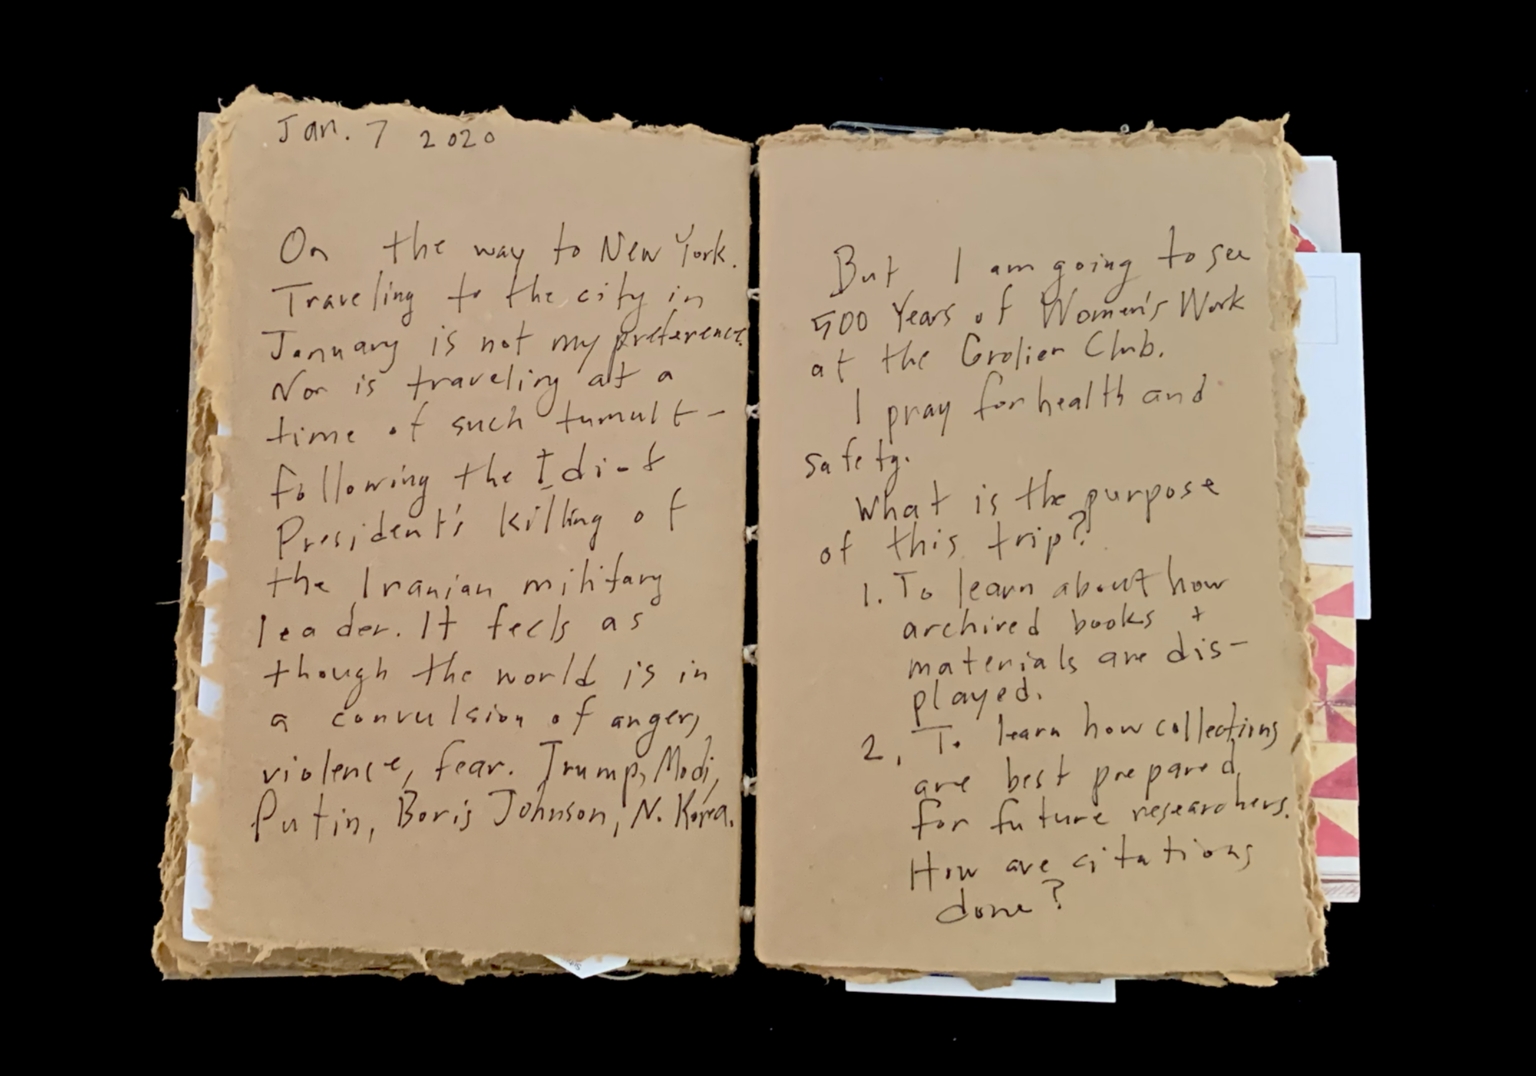 Jan. 7 2020
On the way to New York.
Traveling to the city in
January is not my preference.
Nor is traveling at a
time of such tumult –
following the Idiot
President's killing of
the Iranian military
leader. It feels as
though the world is in
a convulsion of anger,
violence, fear. Trump, Modi,
Putin, Boris Johnson, N. Korea.
But I am going to see
500 Years of Women's Work
at the Grolier Club.
I pray for health and
safety.
What is the purpose
of this trip?
1. To learn about how
archived books +
materials are dis-
played.
2. To learn how collections
are best prepared
for future researchers.
How are citations
done?